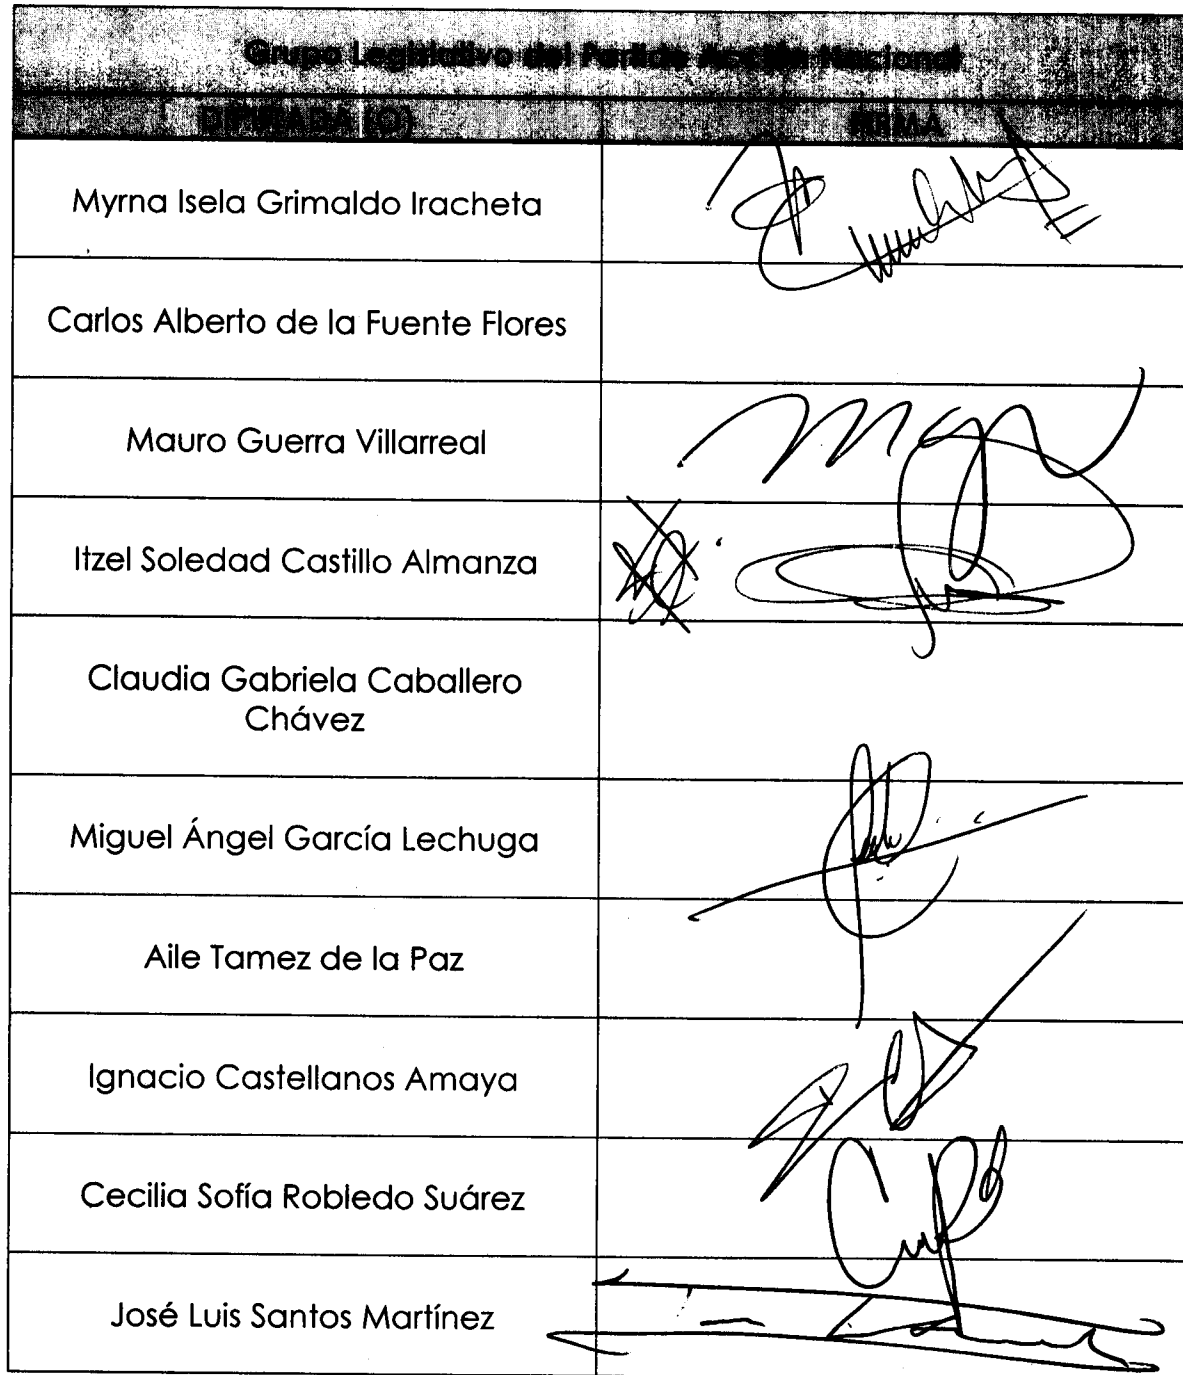 Grupo Legislativo del Partido Acción Nacional
DIPUTADA (O) FIRMA
Myrna Isela Grimaldo Iracheta
Carlos Alberto de la Fuente Flores
Mauro Guerra Villarreal
Itzel Soledad Castillo Almanza
Claudia Gabriela Caballero
Chávez
Miguel Ángel García Lechuga
Aile Tamez de la Paz
Ignacio Castellanos Amaya
Cecilia Sofía Robledo Suárez
José Luis Santos Martínez